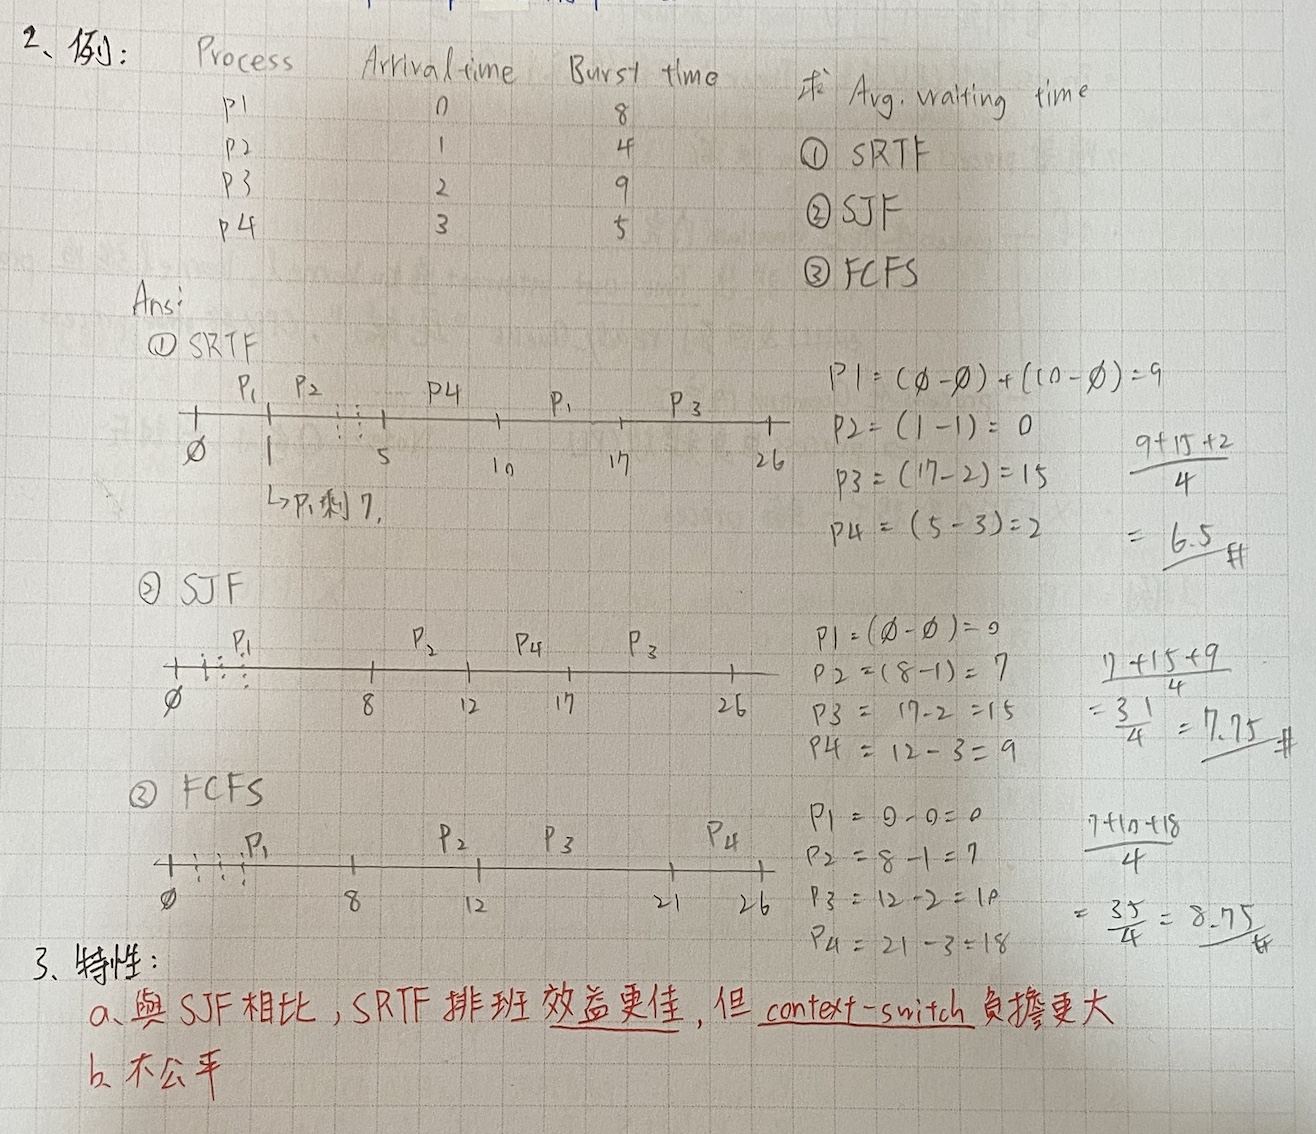 2、例:
Process Arrival time Burst time
p1 0 8
p2 1 4
p3 2 9
p4 3 5
求 Avg. waiting time
① SRTF
② SJF
③ FCFS
Ans:
① SRTF
P1 P2 P4 P1 P3
∅ 1 5 10 17 26
↳P1剩7,
P1 = (∅-∅)+(10-∅)=9
P2 = (1-1) = 0
P3 = (17-2) = 15
P4 = (5-3)=2
9+15+2
4
= 6.5 #
② SJF
P1 P2 P4 P3
∅ 8 12 17 26
P1 = (∅-∅)=0
P2 =(8-1)= 7
P3 = 17-2 =15
P4 = 12-3=9
7+15+9
4
= 31/4 = 7.75 #
③ FCFS
P1 P2 P3 P4
∅ 8 12 21 26
P1 = 0-0=0
P2 = 8-1=7
P3 = 12-2=10
P4 = 21-3=18
7+10+18
4
= 35/4 = 8.75 #
3、特性:
a、與 SJF 相比, SRTF 排班 效益更佳, 但 context-switch 負擔更大
b、不公平